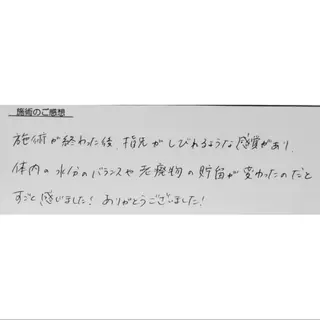 施術のご感想
施術が終わった後、指先がしびれるような感覚があり、
体内の水分のバランスや老廃物の貯留が変わったのだと
すごく感じました！ありがとうございました！